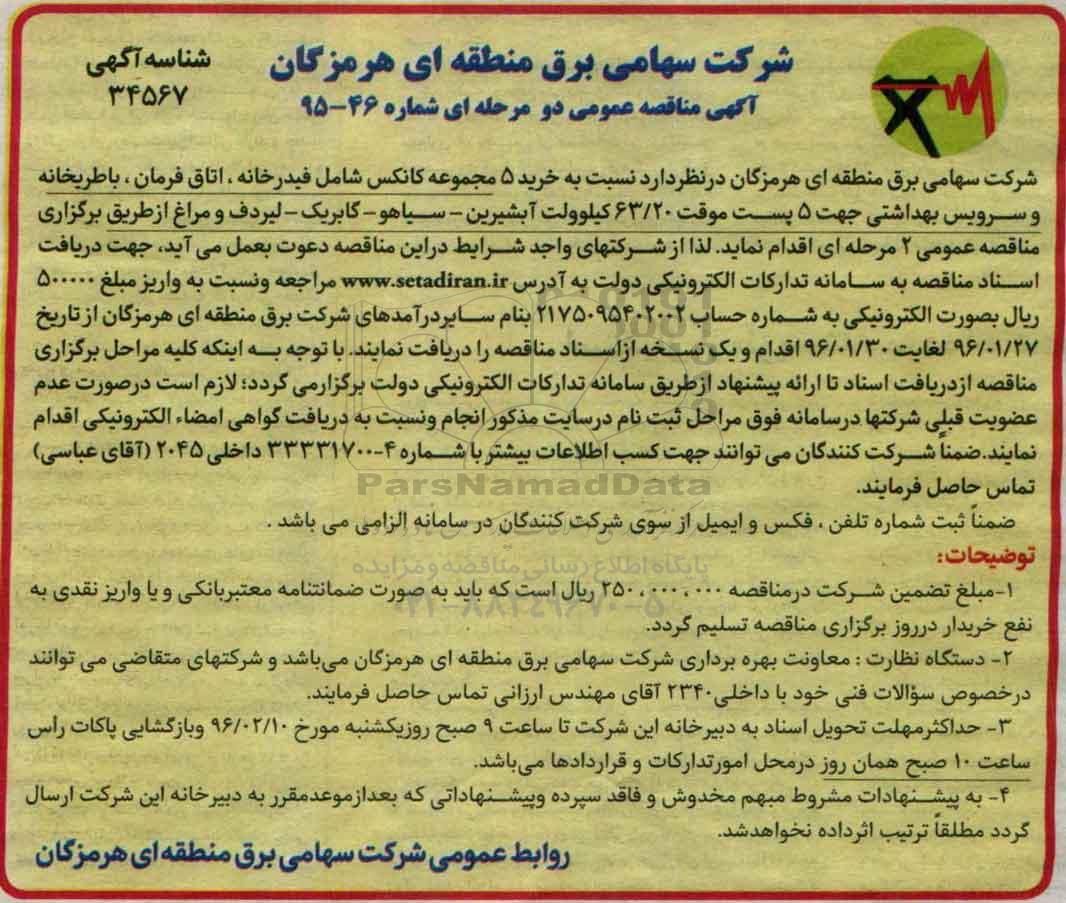 شرکت سهامی برق منطقه ای هرمزگان
آگهی مناقصه عمومی دو مرحله ای شماره ۴۶-۹۵
شناسه آگهی
۳۴۵۶۷
شرکت سهامی برق منطقه ای هرمزگان درنظردارد نسبت به خرید ۵ مجموعه کانکس شامل فیدرخانه ، اتاق فرمان ، باطریخانه
و سرویس بهداشتی جهت ۵ پست موقت ۶۳/۲۰ کیلوولت آبشیرین - سیاهو - گابریک - لیردف و مراغ ازطریق برگزاری
مناقصه عمومی ۲ مرحله ای اقدام نماید. لذا از شرکتهای واجد شرایط دراین مناقصه دعوت بعمل می آید، جهت دریافت
اسناد مناقصه به سامانه تدارکات الکترونیکی دولت به آدرس www.setadiran.ir مراجعه ونسبت به واریز مبلغ ۵۰۰۰۰۰
ریال بصورت الکترونیکی به شماره حساب ۲۱۷۵۰۹۵۴۰۲۰۰۲ بنام سایردرآمدهای شرکت برق منطقه ای هرمزگان از تاریخ
۹۶/۰۱/۲۷ لغایت ۹۶/۰۱/۳۰ اقدام و یک نسخه ازاسناد مناقصه را دریافت نمایند. با توجه به اینکه کلیه مراحل برگزاری
مناقصه ازدریافت اسناد تا ارائه پیشنهاد ازطریق سامانه تدارکات الکترونیکی دولت برگزارمی گردد؛ لازم است درصورت عدم
عضویت قبلی شرکتها درسامانه فوق مراحل ثبت نام درسایت مذکور انجام ونسبت به دریافت گواهی امضاء الکترونیکی اقدام
نمایند.ضمناً شرکت کنندگان می توانند جهت کسب اطلاعات بیشتر با شماره ۴-۳۳۳۳۱۷۰۰ داخلی ۲۰۴۵ (آقای عباسی)
تماس حاصل فرمایند.
ParsNamadData
ضمناً ثبت شماره تلفن ، فکس و ایمیل از سوی شرکت کنندگان در سامانه الزامی می باشد .
توضیحات:
پایگاه اطلاع رسانی مناقصه و مزایده
۱-مبلغ تضمین شرکت درمناقصه ۲۵۰،۰۰۰،۰۰۰ ریال است که باید به صورت ضمانتنامه معتبربانکی و یا واریز نقدی به
۰۲۱-۸۸۳۴۹۶۷۰-۵
نفع خریدار درروز برگزاری مناقصه تسلیم گردد.
۲- دستگاه نظارت : معاونت بهره برداری شرکت سهامی برق منطقه ای هرمزگان می‌باشد و شرکتهای متقاضی می توانند
درخصوص سؤالات فنی خود با داخلی۲۳۴۰ آقای مهندس ارزانی تماس حاصل فرمایند.
۳- حداکثرمهلت تحویل اسناد به دبیرخانه این شرکت تا ساعت ۹ صبح روزیکشنبه مورخ ۹۶/۰۲/۱۰ وبازگشایی پاکات رأس
ساعت ۱۰ صبح همان روز درمحل امورتدارکات و قراردادها می‌باشد.
۴- به پیشنهادات مشروط مبهم مخدوش و فاقد سپرده وپیشنهاداتی که بعدازموعدمقرر به دبیرخانه این شرکت ارسال
گردد مطلقاً ترتیب اثرداده نخواهدشد.
روابط عمومی شرکت سهامی برق منطقه ای هرمزگان